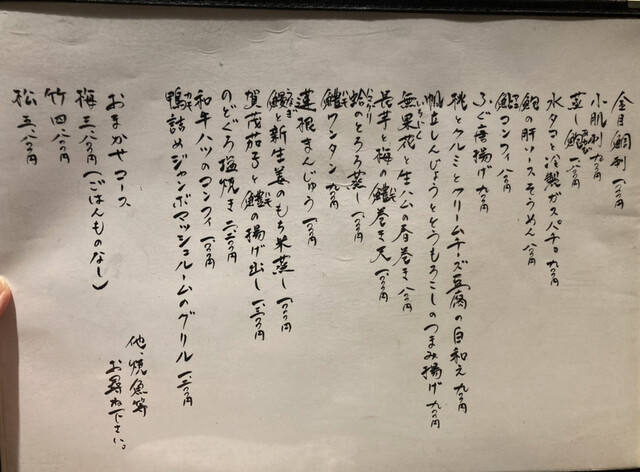 金目鯛刺
小肌刺 九〇〇円
蒸し鮑
水タコと冷製ガスパチョ 九〇〇円
鮑の肝ソースそうめん 八〇〇円
コンフィ 八〇〇円
ふぐ唐揚げ 九〇〇円
桃とクルミとクリームチーズ豆腐の白和え 九〇〇円
帆立しんじょうととうもろこしのつまみ揚げ 九〇〇円
無果花と生ハムの春巻き 八〇〇円
長芋と梅の鱧巻き天 一、〇〇〇円
蛤のとろろ蒸し
鱧ワンタン
蓮根まんじゅう
鰻と新生姜のもち米蒸し
賀茂茄子と鱧の揚げ出し
のどぐろ塩焼き
和牛ハツのコンフィ
鴨詰めジャンボマッシュルームのグリル
おまかせコース
梅 三八〇〇円(ごはんものなし)
竹 四八〇〇円
松 五八〇〇円
他、焼魚等
お尋ね下さい。